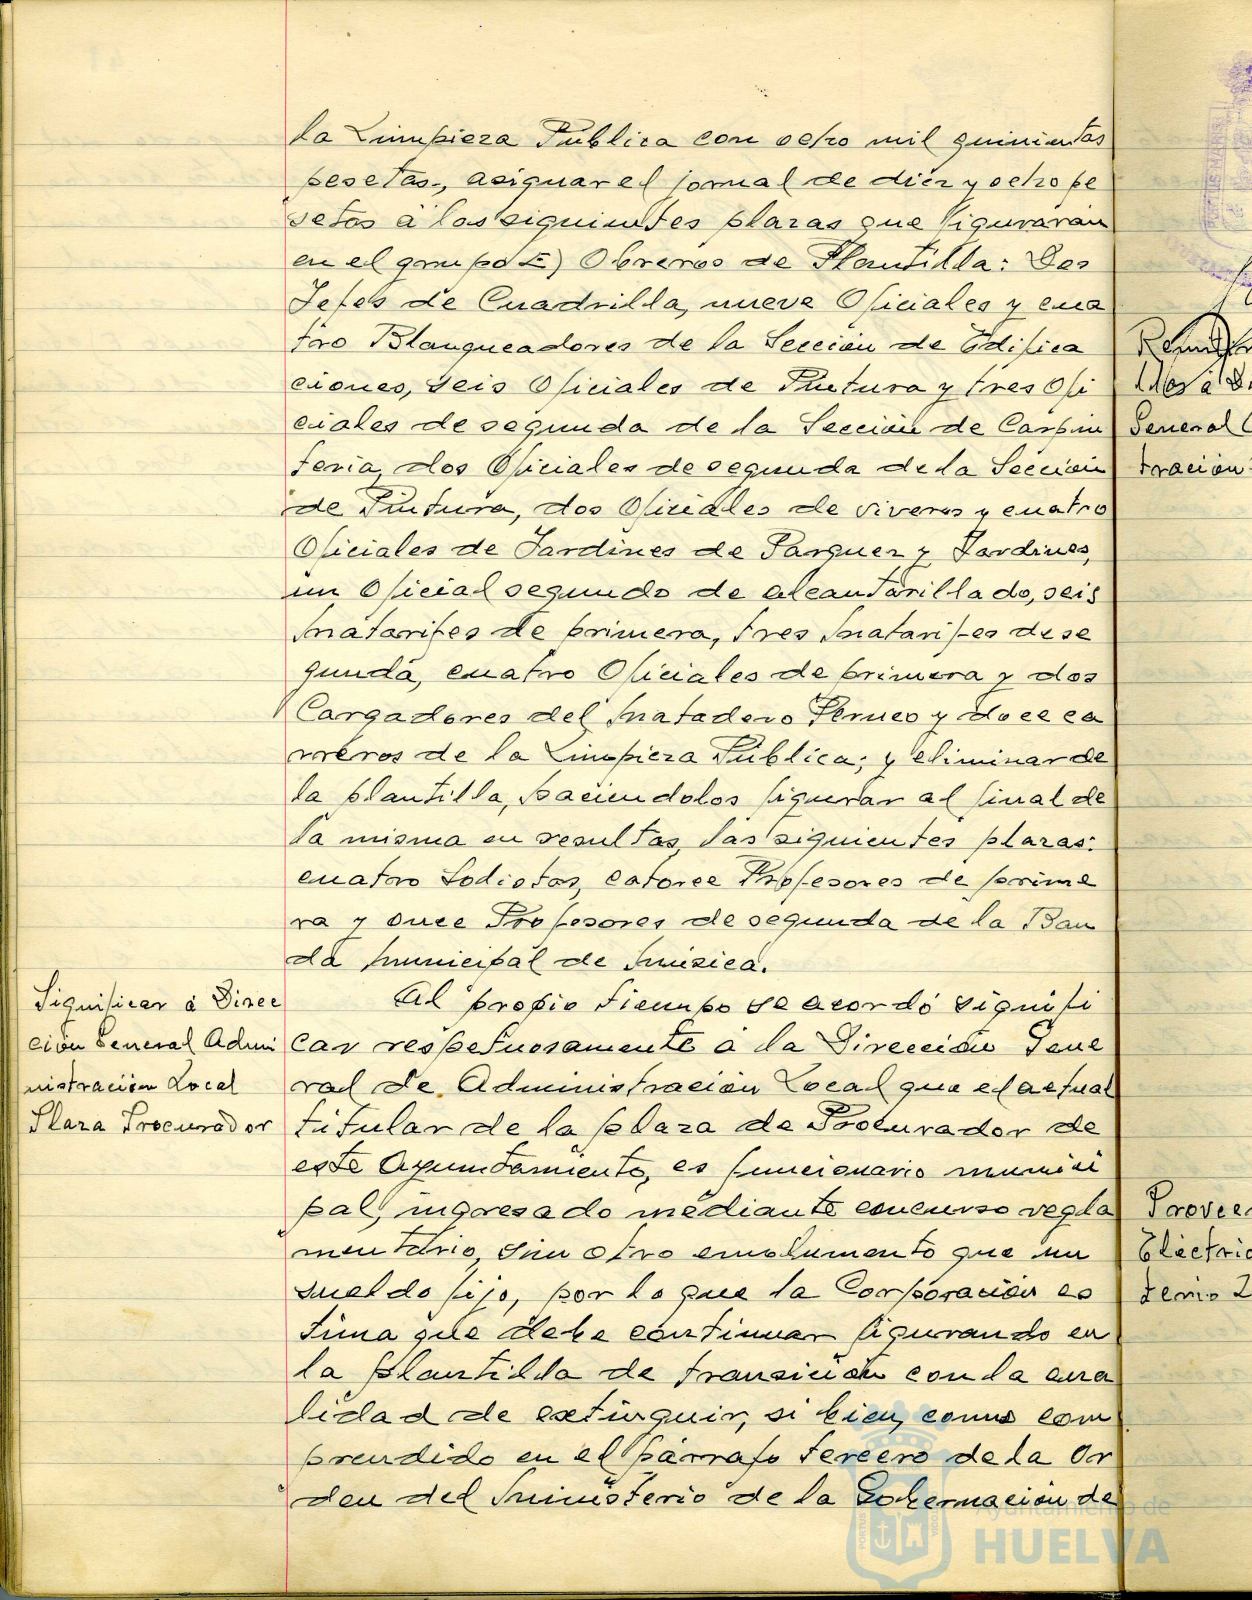 la Limpieza Pública con ocho mil quinientas
pesetas., asignar el jornal de diez y ocho pe
setas á las siguientes plazas que figurarán
en el grupo E) Obreros de Plantilla: Dos
Jefes de Cuadrilla, nueve Oficiales y cua
tro Blanqueadores de la Sección de Edifica
ciones, seis Oficiales de Pintura y tres Ofi
ciales de segunda de la Sección de Carpin
tería, dos Oficiales de segunda de la Sección
de Pintura, dos Oficiales de viveros y cuatro
Oficiales de Jardines de Parques y Jardines,
un Oficial segundo de alcantarillado, seis
Matarifes de primera, tres Matarifes de se
gunda, cuatro Oficiales de primera y dos
Cargadores del Matadero Perneo y doce ca
rreros de la Limpieza Pública; y eliminar de
la plantilla, haciendolos figurar al final de
la misma en resultas, las siguientes plazas:
cuatro Sodistas, catorce Profesores de prime
ra y once Profesores de segunda de la Ban
da Municipal de Música.
Significar á Direc
ción General Admi
nistración Local
Plaza Procurador
Al propio tiempo se acordó signifi
car respetuosamente á la Dirección Gene
ral de Administración Local que el actual
titular de la plaza de Procurador de
este Ayuntamiento, es funcionario munici
pal, ingresado mediante concurso regla
mentario, sin otro emolumento que un
sueldo fijo, por lo que la Corporación es
tima que debe continuar figurando en
la plantilla de transición con la cua
lidad de extinguir, si bien, como com
prendido en el párrafo tercero de la Or
den del Ministerio de la Gobernación de
General
tración
Provee
Electric
terio 2
Ayuntamiento de
HUELVA